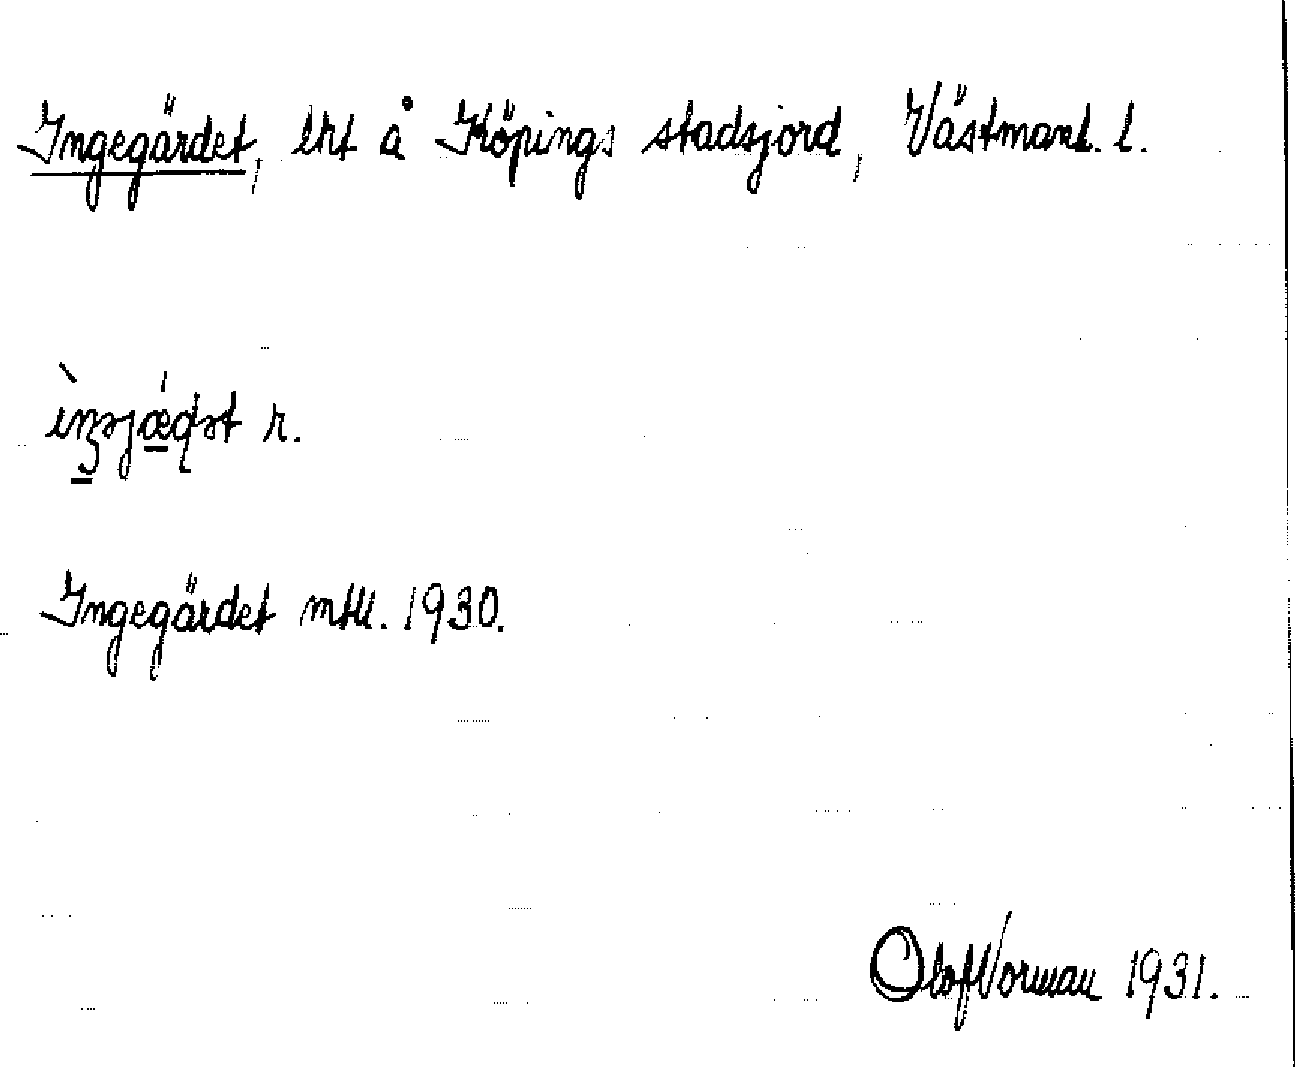 Ingegärdet, lht å Köpings stadsjord, Västmanl. l.
r.
Ingegärdet mtl. 1930.
Olof Norman 1931.